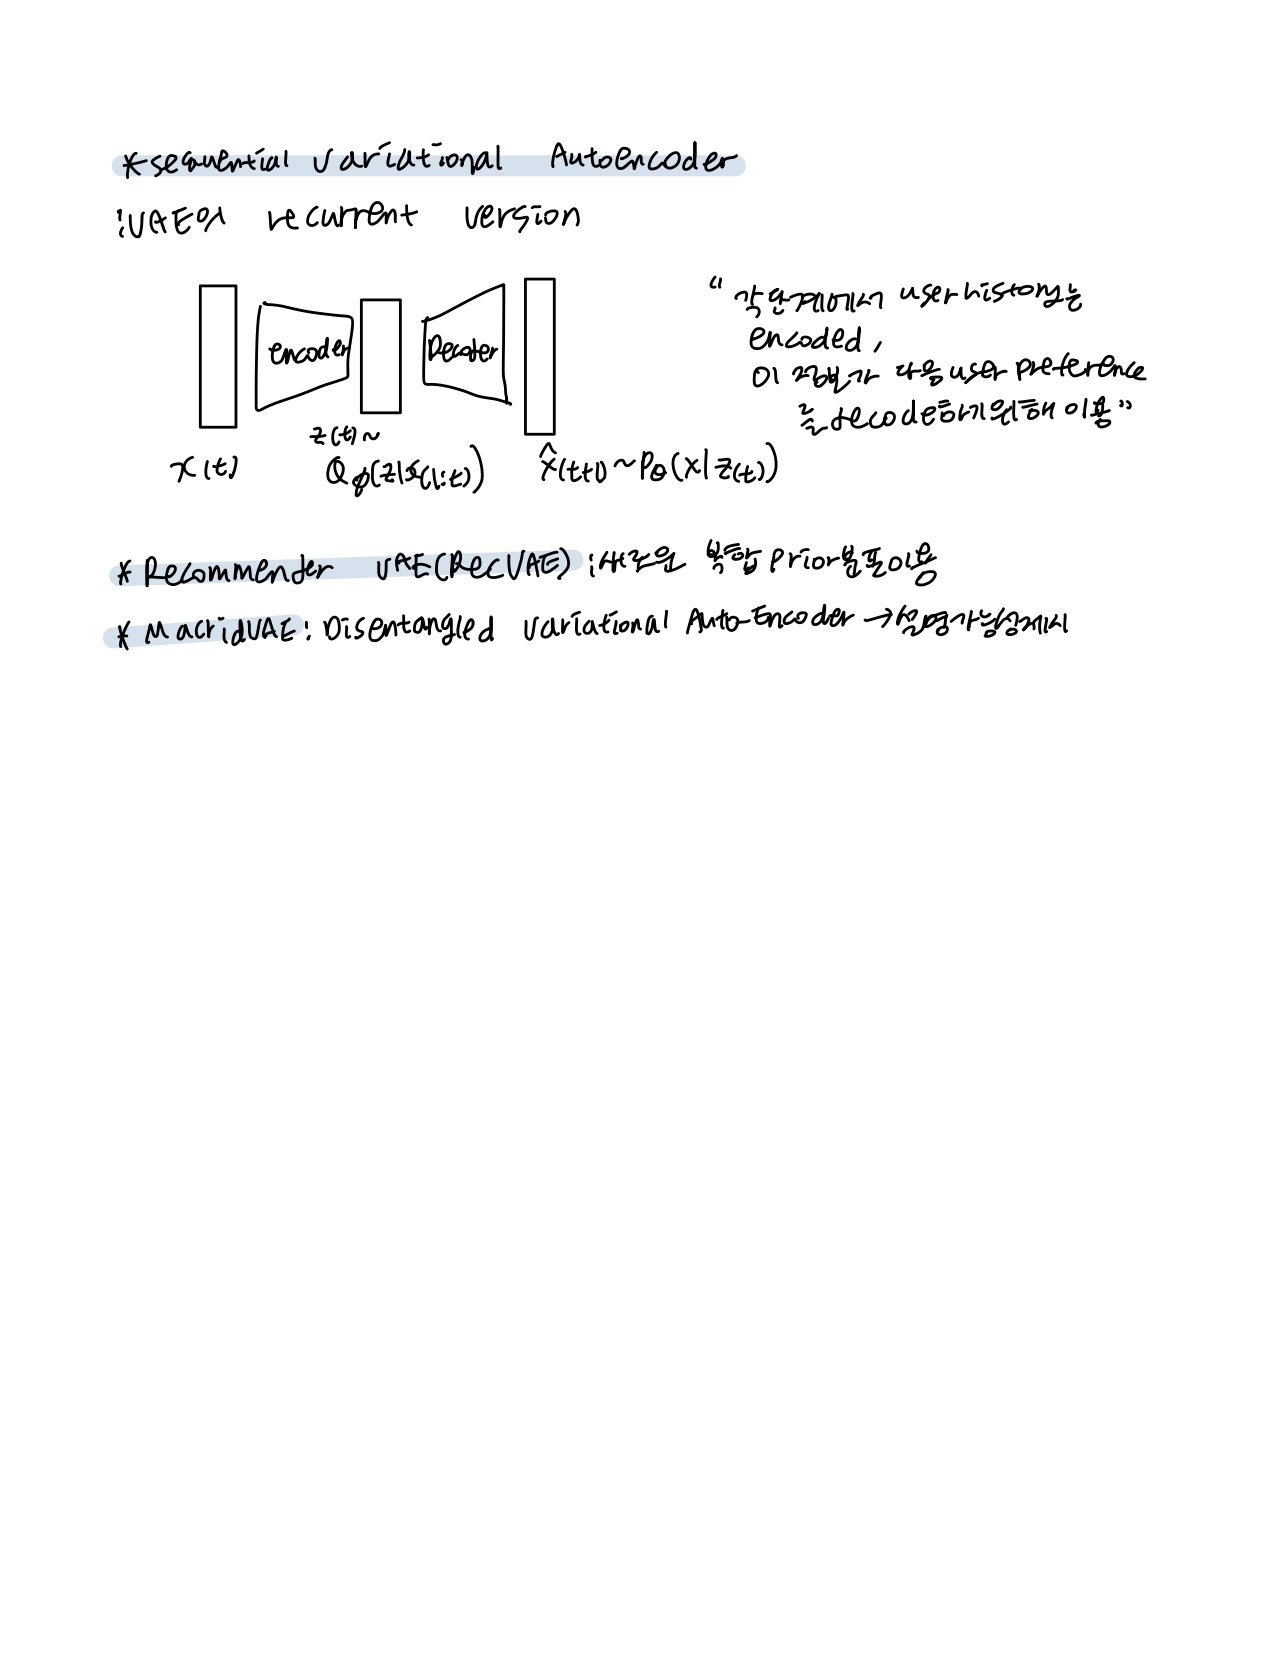 *sequential variational Autoencoder
:VAE의 recurrent version
"각 단계에서 user history는
encoded,
이 정보가 다음 user preference
를 decode하기 위해 이용"
encoder
Decoder
z(t)~
x(t)
Qφ(z|x(1:t))
x̂(t+1)~Pθ(x|z(t))
* Recommender VAE(RecVAE) :새로운 복합 prior분포 이용
* MacridVAE: Disentangled variational Auto-Encoder →설명가능성 제시